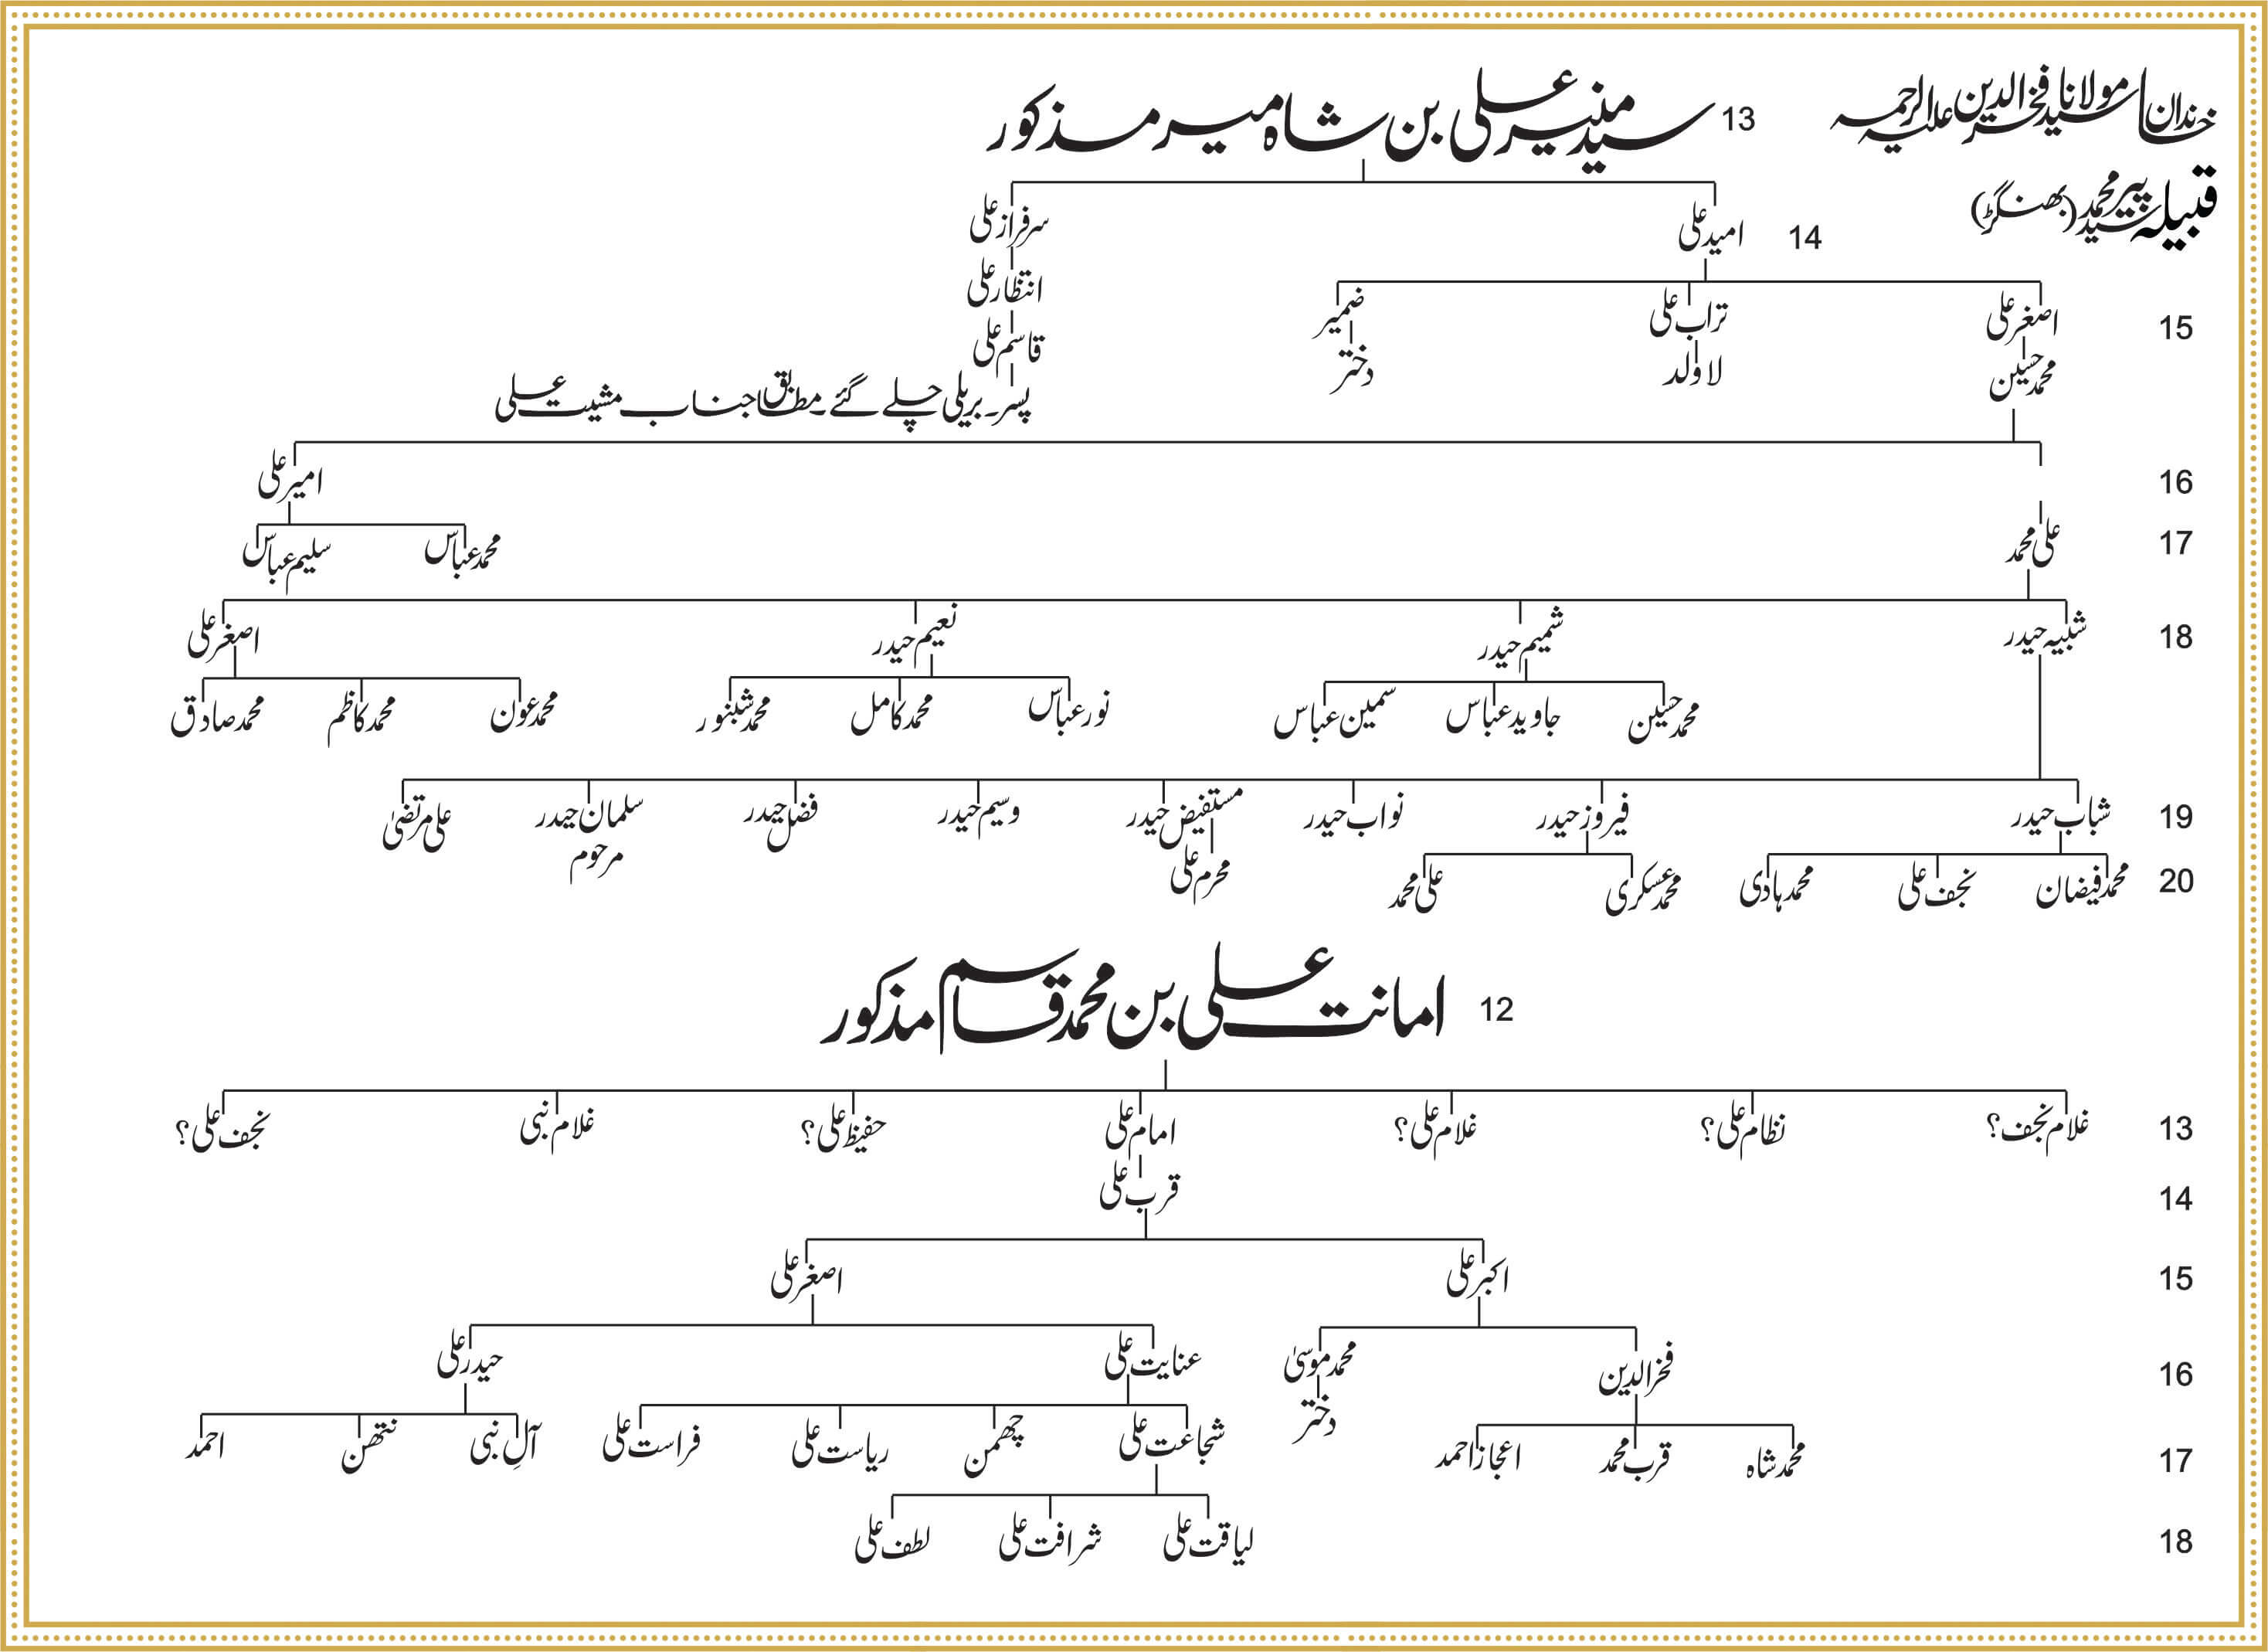 خاندان مولانا سید فخرالدین علیہ الرحمہ
قبیلہ سید پیر محمد (بھنگڑ)
13 سید منیر علی بن شاہ میر مذکور
14 امید علی سرفراز علی
انتظار علی
15 اصغر علی تراب علی ضمیر قاسم علی
محمد حسین لا ولد دختر
پسر۔ بریلی چلے گئے۔ مطابق جناب مشیت علی
16 امیر علی
17 علی محمد محمد عباسؔ سلیم عباسؔ
18 شبیہ حیدر شمیم حیدر نعیم حیدر اصغر علی
محمد حسین جاوید عباس سمین عباس نور عباسؔ محمد کامل محمد شبنور محمد عون محمد کاظم محمد صادق
19 شباب حیدر فیروز حیدر نواب حیدر مستفیض حیدر وسیم حیدر فضل حیدر سلمان حیدر مرحوم علی مرتضیٰ
20 محمد فیضان نجف علی محمد ہادی محمد عسکری علی محمد محرم علی
12 امانت علی بن محمد قاسم مذکور
13 غلام نجف؟ نظام علی؟ غلام علی؟ امام علی حفیظ علی؟ غلام نبی نجف علی؟
14 قرب علی
15 اکبر علی اصغر علی
16 فخر الدین محمد موسیٰ عنایت علی حیدر علی
دختر
17 محمد شاہ قرب محمد اعجاز احمد شجاعت علی چھمن ریاست علی فراست علی آلِ نبی نتھن احمد
18 لیاقت علی شرافت علی لطف علی